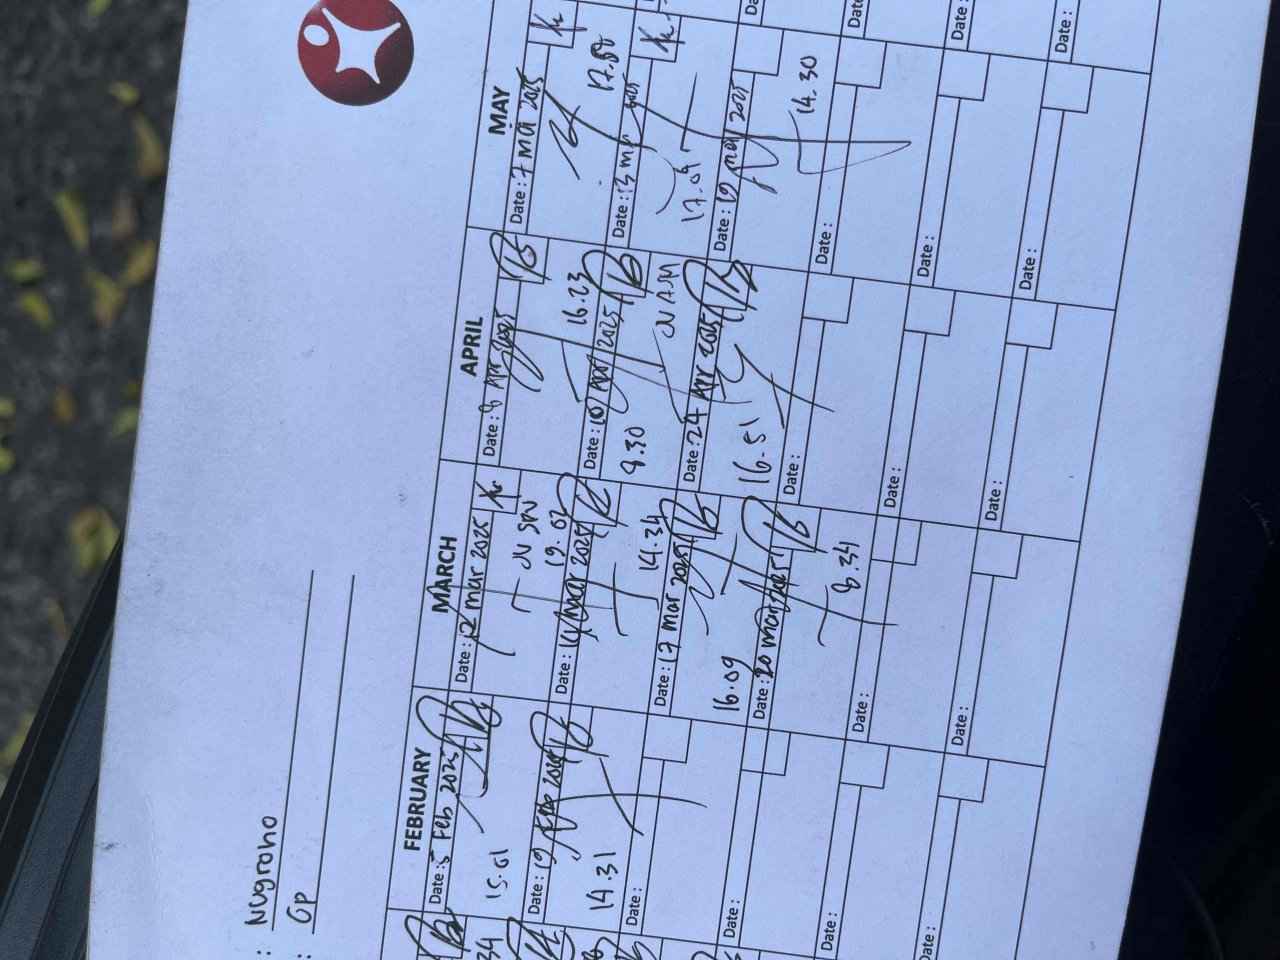 : Nugroho
: GP
FEBRUARY
Date : 5 Feb 2025
15.01
Date : 19 Feb 2025
14.31
Date :
Date :
Date :
Date :
MARCH
Date : 12 mar 2025
JV SW
19.02
Date : 14 mar 2025
14.34
Date : 17 mar 2025
16.09
Date : 20 mar 2025
8.34
Date :
Date :
APRIL
Date : 8 Apr 2025
16.23
Date : 10 Apr 2025
JV ASM
8.30
Date : 24 Apr 2025
16.51
Date :
Date :
Date :
MAY
Date : 7 Mei 2025
Date : 13 mei 2025
17.09
Date : 19 may 2025
14.30
Date :
Date :
Date :
Date :
Date :
Date :